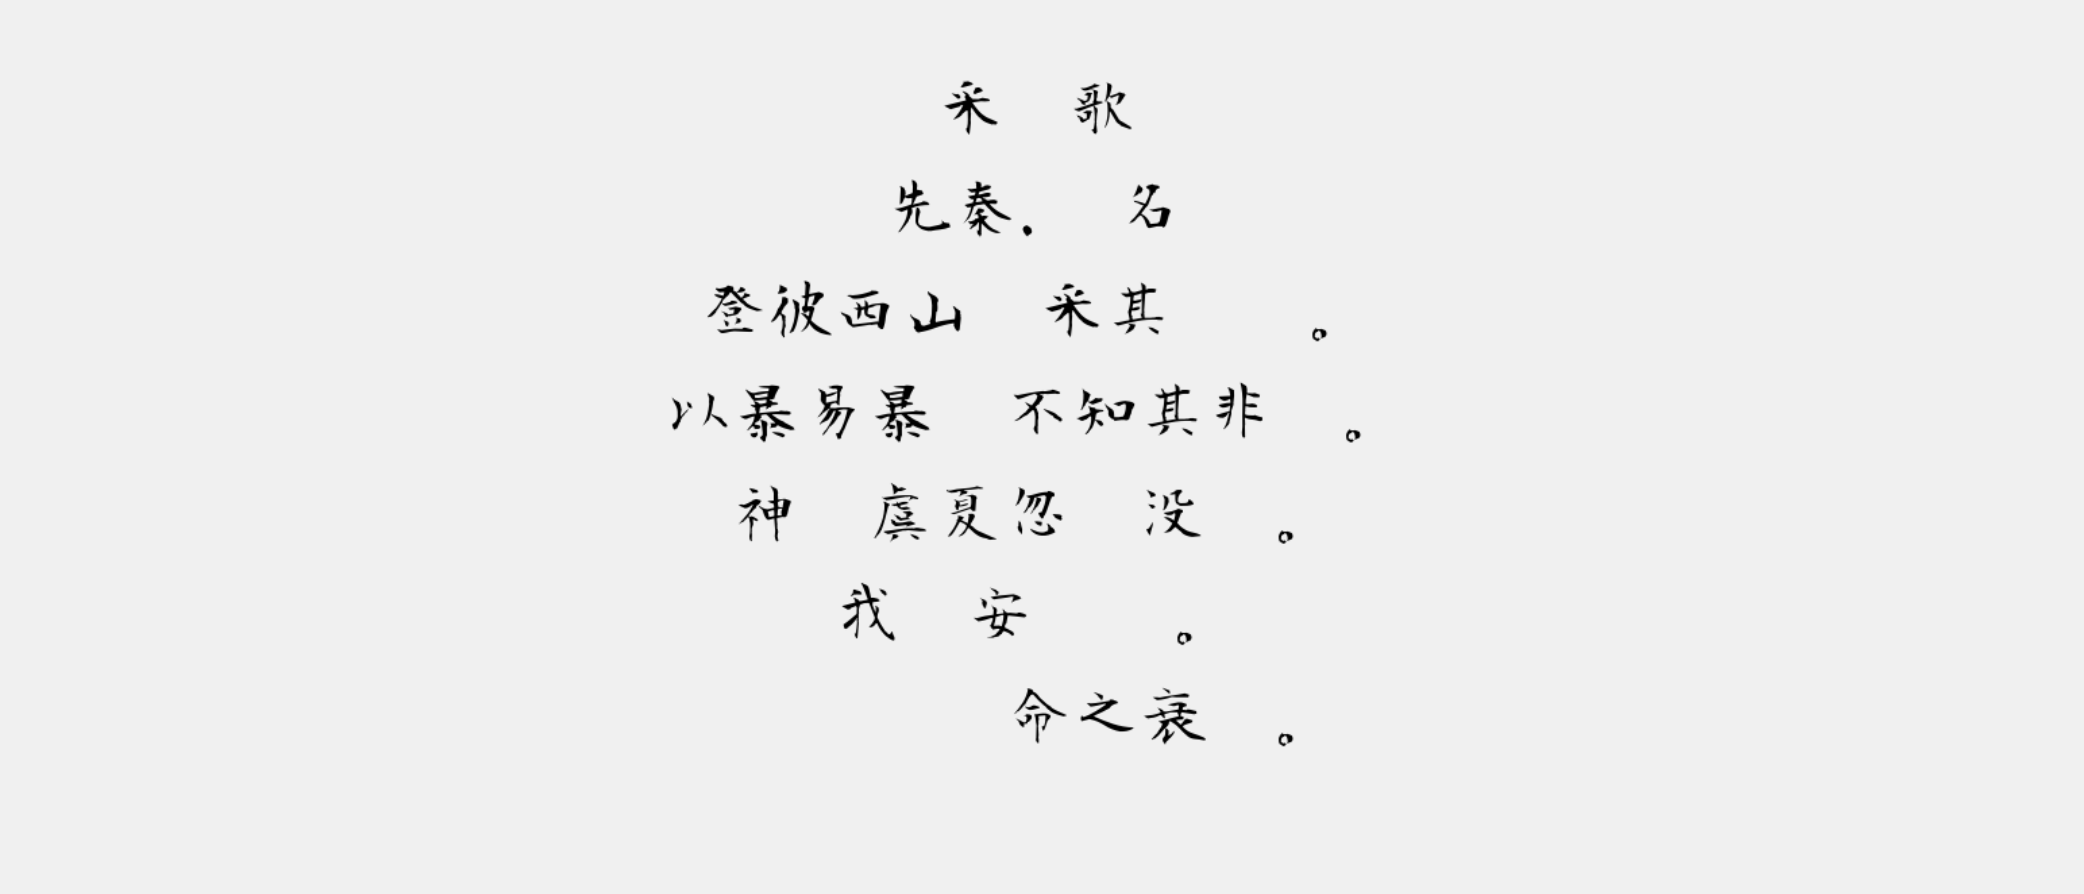 采 歌
先秦. 名
登彼西山 采其 。
以暴易暴 不知其非 。
神 虞夏忽 没 。
我 安 。
命之衰 。